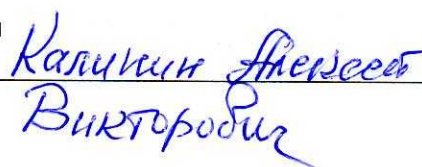 Калинин Алексей
Викторович